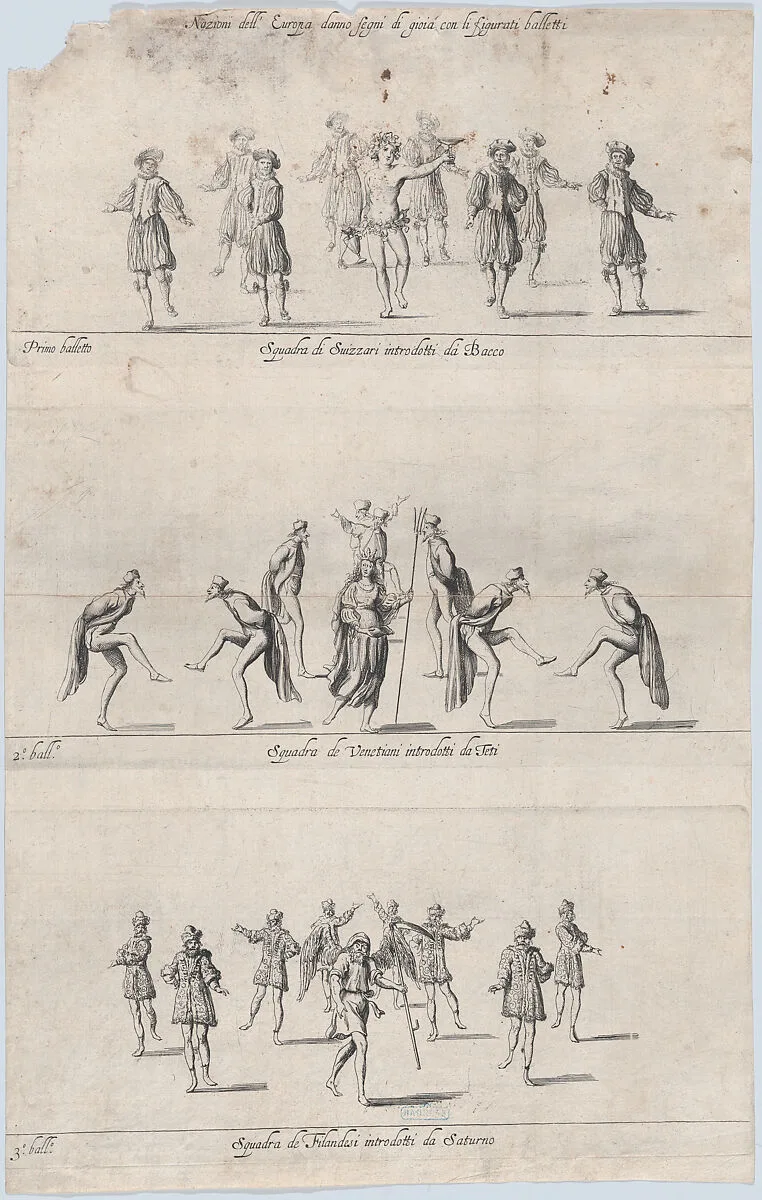 Nozioni dell' Europa danno segni di gioiá con li figurati balletti
Primo balletto
Squadra di Suizzari introdotti dá Bacco
2.º ball.º
Squadra de Venetiani introdotti da Teti
3.º ball.º
Squadra de Filandesi introdotti da Saturno